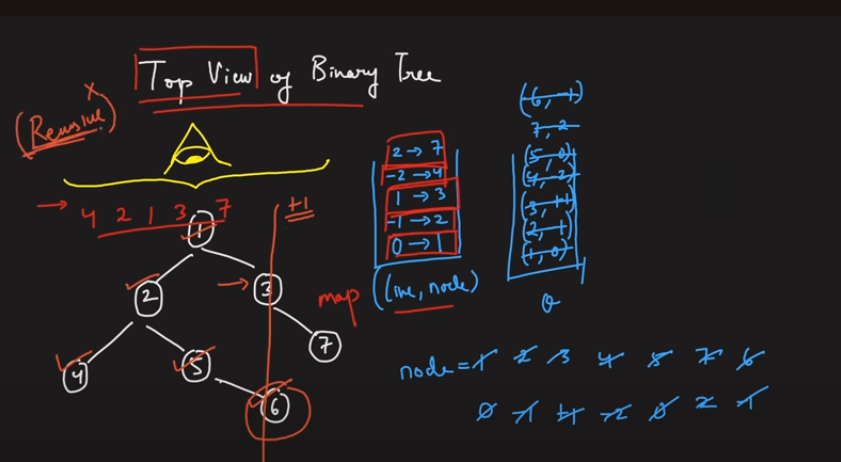 Top View of Binary Tree
x
(Recursive)
4 2 1 3 7
+1
1
2
3
7
4
5
6
2 → 7
-2 → 4
1 → 3
-1 → 2
0 → 1
map (line, node)
(6, +1)
7, 2
(5, 0)
(4, -2)
(3, +1)
(2, -1)
(1, 0)
Q
node = 1 2 3 4 5 7 6
0 -1 +1 -2 0 2 1